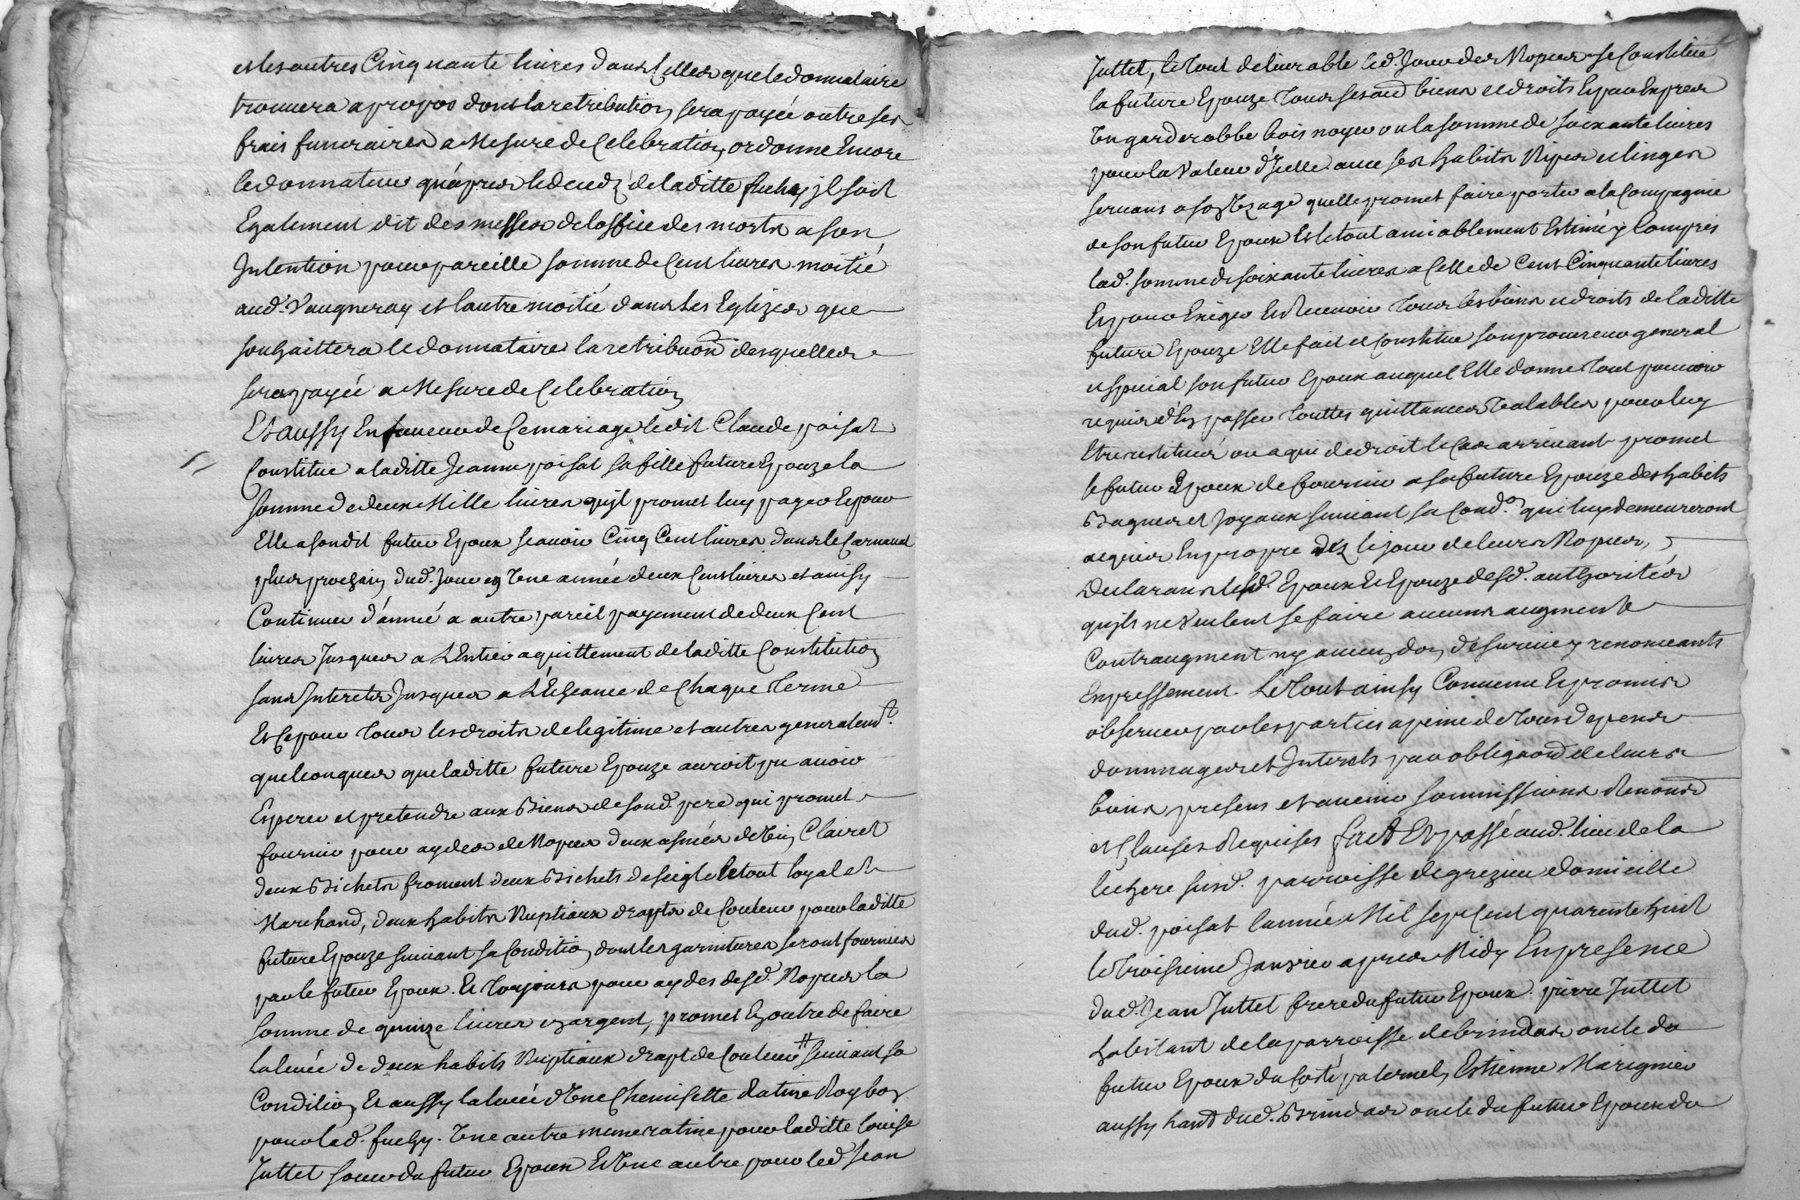 et les autres Cinquante livres dans Celles que le donnataire
trouvera a propos dont la retribution sera payée outre ses
frais funeraires a Mesure de Celebration, ordonne Encore
le donnateur qu'apres le decedz de laditte fuchy jl soit
Egalement dit des messes de l'office des morts a son
Intention pour pareille somme de Cent livres moitié
aud. Vaugneray et l'autre moitié dans les Eglizes que
souhaittera le donnataire la retribuon desquelles
sera payée a Mesure de Celebration
Et aussy En faveur de Ce mariage ledit Claude poisat
Constitue a laditte Jeanne poisat sa fille future Epouze la
somme de deux Mille livres qu'jl promet luy payer Et pour
Elle a son dit futur Epoux scavoir Cinq Cent livres dans le Carnaval
plus prochain dud. Jour en Une année deux Cent livres et ainsy
Continuer d'année a autre pareil payement de deux Cent
livres Jusques a L'Entier aquittement de laditte Constitution
sans Interets Jusques a L'Echeance de Chaque Terme
Et Ce pour Tous les droits de legitime et autres generalemt
quelconques que laditte future Epouze auroit pu avoir
Esperer et pretendre aux Biens de sond. pere qui promet
fournir pour aydes de Nopces deux asnées de Vin Clairet
deux Bichets froment deux Bichets de seigle le tout loyal et
Marchand, deux habits Nuptiaux drapts de Couleur pour laditte
future Epouze suivant sa Condition dont les garnitures seront fournies
par le futur Epoux. Et Toujours pour aydes desd. Nopces la
somme de quinze livres en argent, promet En outre de faire
la levée de deux habits Nuptiaux drapt de Couleur # suivant sa
Condition, Et aussy la levée d'Une Chemisette Ratine Roybon
pour lad. fuchy. Une autre meme ratine pour laditte louise
Juttet soeur du futur Epoux Et Une autre pour led. Jean
Juttet, le tout delivrable led. Jour des Nopces se Constitue
la future Epouze Tous ses aud biens et droits Et par Expres
Un garderobbe bois noyer ou la somme de soixante livres
pour la Valeur d'jcelle avec ses habits Nipes et linges
servans a son Uzage quelle promet faire porter a la Compagnie
de son futur Epoux Et le tout amiablement Estimé y Compris
lad. somme de soixante livres a Celle de Cent Cinquante livres
Et pour Exiger Et Recevoir Tous les biens et droits de laditte
future Epouze Elle fait et Constitue son procureur general
et special son futur Epoux auquel Elle donne Tout pouvoir
requis d'En passer Touttes quittances Valables pour luy
Etre restitués ou a qui de droit le Cas arrivant promet
le futur Epoux de fournir a sa future Epouze des habits
Bagues et Joyaux suivant sa Condon qui luy demeureront
acquis En propre dez le jour de leurs Nopces,
Declarans lesd. Epoux Et Epouze desd. authorités
qu'jls ne Veulent se faire aucuns augment
Contraugment ny aucun don de survie y renonceants
Expressement. Le Tout ainsy Convenu Et promis
observer par les parties a peine de Tous depens
dommages et Interets par obligaond de leurs
biens presens et avenir soumissions Renonds
et Clauses Requises fait Et passé aud. lieu de la
lechere susd. parroisse de grezieu domicille
dud. poisat l'année Mil sept Cent quarente huit
le Troisieme Janvier apres Midy En presence
dud. Jean Juttet frere du futur Epoux. pierre Juttet
habitant de la parroisse de brindas oncle du
futur Epoux du Costé paternel, Estienne Marignier
aussy hant dud. Brindas oncle du futur Epoux du